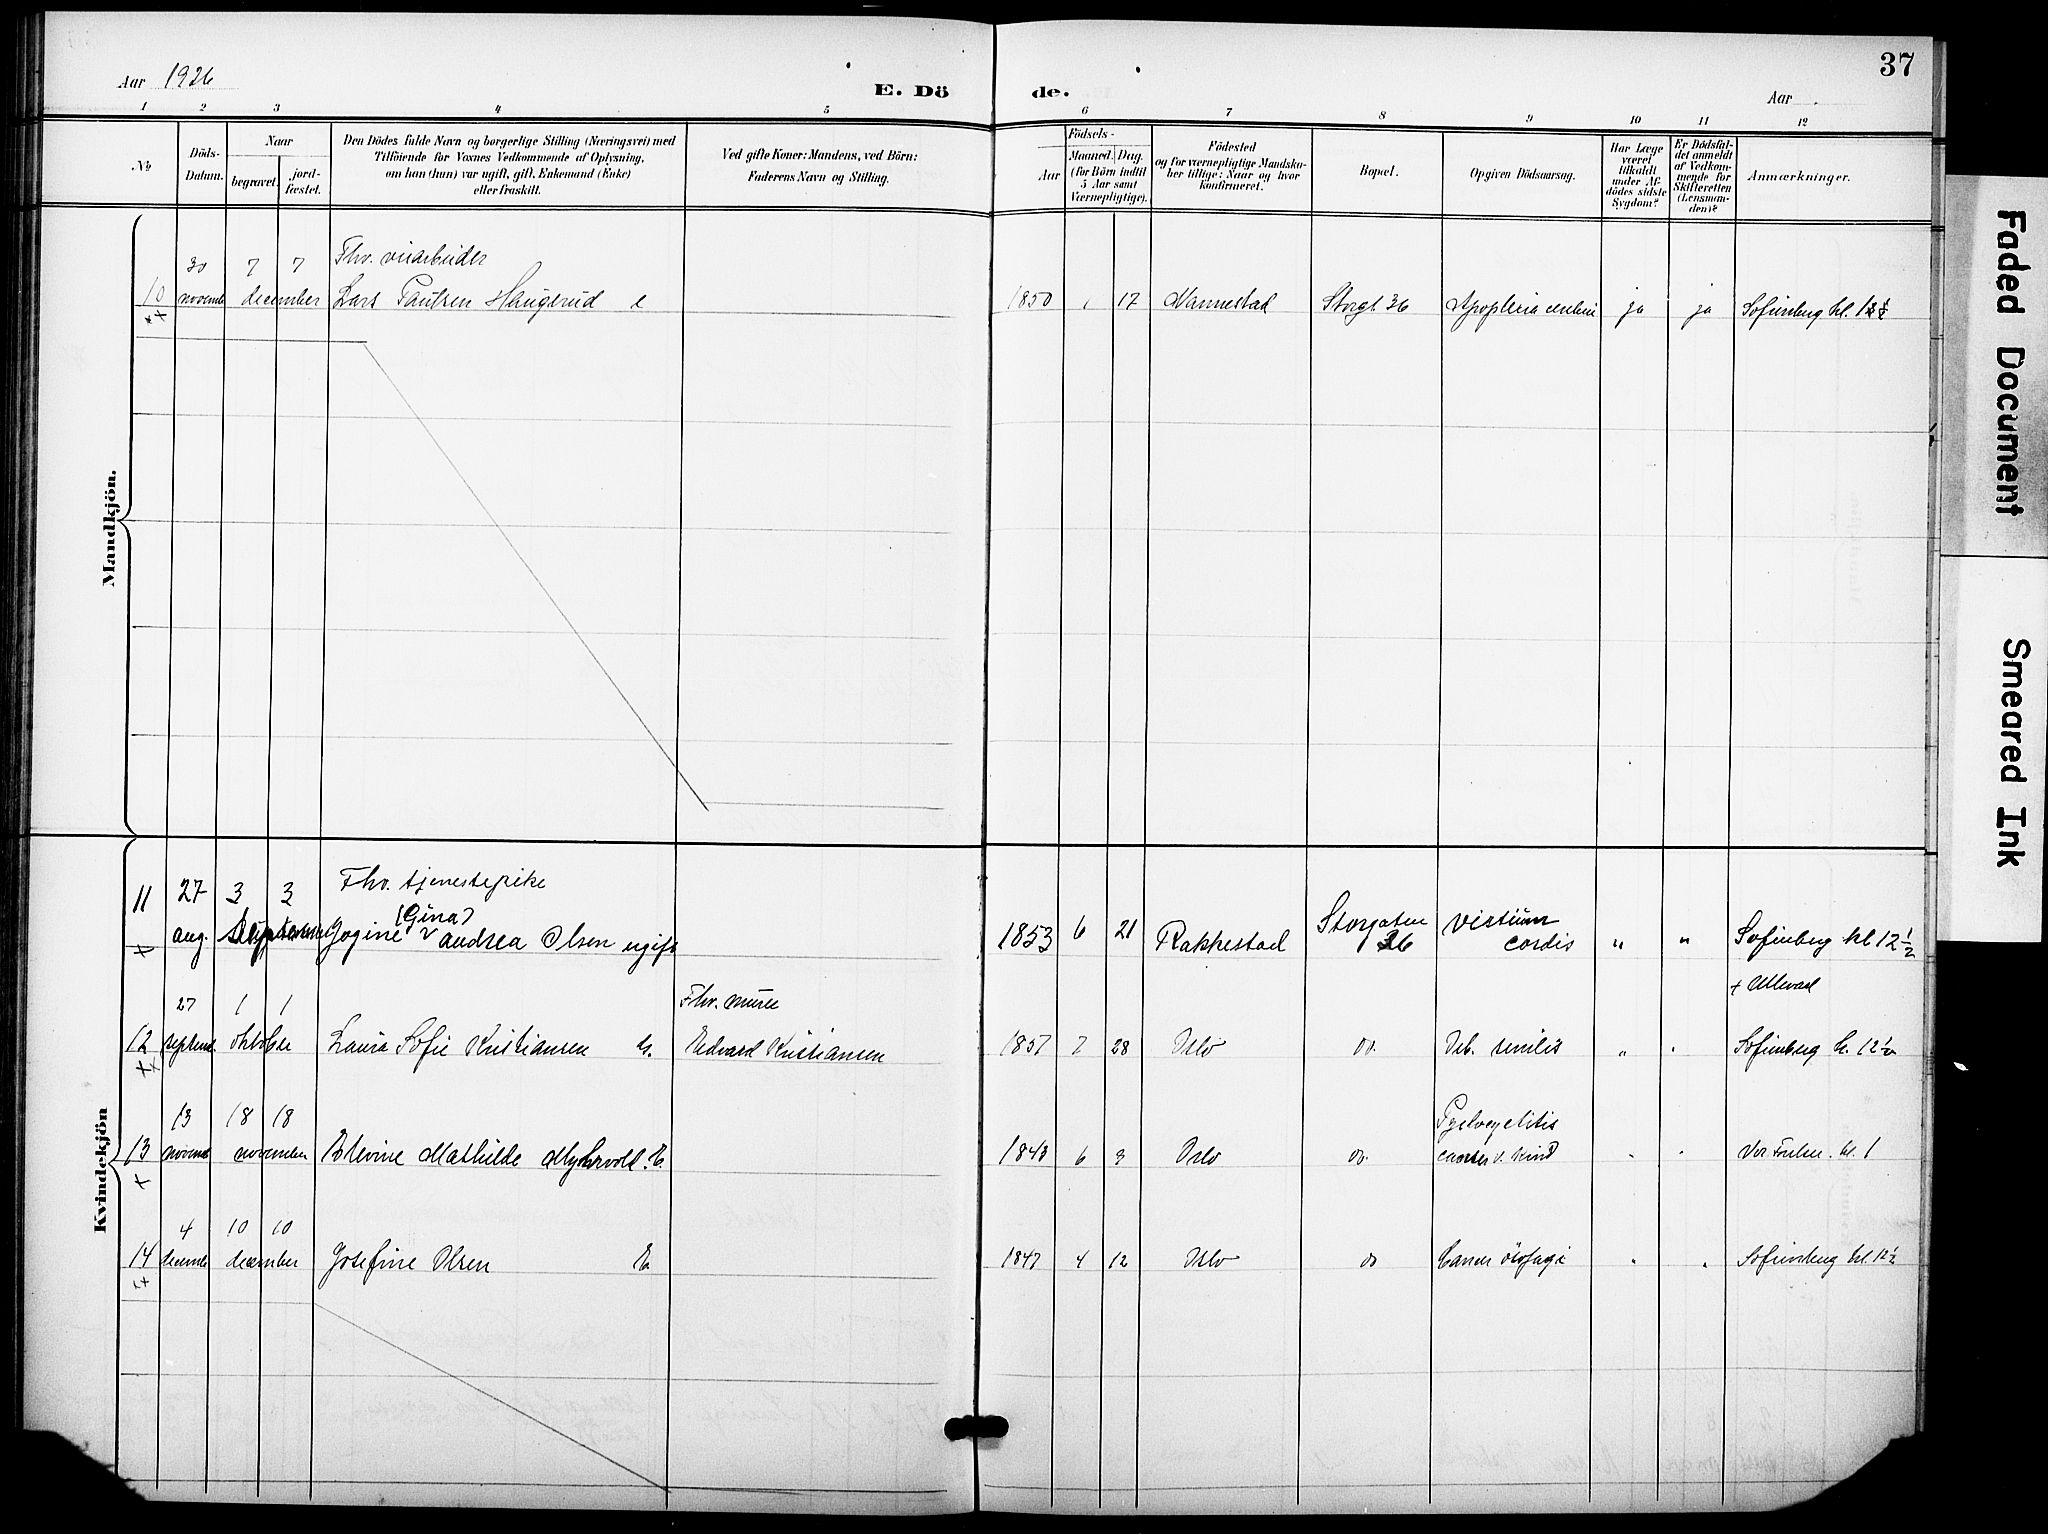 37
Aar 1926
E. Dö
de.
Aar
1 2 3 4 5 6 7 8 9 10 11 12
No.
Döds-
Datum.
Naar
begravet.
jord-
fæstet.
Den Dödes fulde Navn og borgerlige Stilling (Næringsvei) med
Tilföiende for Voxnes Vedkommende af Oplysning,
om han (hun) var ugift, gift, Enkemand (Enke)
eller fraskilt.
Ved gifte Koner: Mandens, ved Börn:
Faderens Navn og Stilling.
Födsels-
Aar
Maaned.
Dag.
(for Börn indtil
5 Aar samt
Værnepligtige).
Födested
og for værnepligtige Mandska-
ber tillige: Naar og hvor
konfirmeret.
Bopæl.
Opgiven Dödsaarsag.
Har Læge
været
tilkaldt
under Af-
dödes sidste
Sygdom?
Er Dödsfal-
det anmeldt
af Vedkom-
mende for
Skifteretten
(Lensman-
den)?
Anmærkninger.
Mandkjön.
30 7 7 Fhv.
10 novemb december Lars Paulsen Haugerud e 1850 17 Nannestad Storgt. 36 Apoplexia cerebri ja ja Sofienberg kl.
Kvindekjön
27 3 3 Fhv. tjenestepike
(Gina)
11 aug. september Jogine Andrea Olsen ugift 1853 6 21 Rakkestad Storgaten 36 vistium cordis " " Sofienberg kl 12 1/2
+ Ullevaal
27 1 1 Fhv. murer
12 septemb. oktober Laura Sofie Kristiansen E. Edvard Kristiansen 1857 7 28 Oslo do. Deb. senilis " " Sofienberg kl. 12 1/2
13 18 18
13 novemb november Elevine Mathilde Myhrvold. E. 1843 6 9 Oslo do. " " Vor Frelser. kl. 1
4 10 10
14 decemb december Josefine Olsen E. 1847 4 12 Oslo do Cancerösofagi " " Sofienberg kl. 12 1/2
Faded Document
Smeared Ink